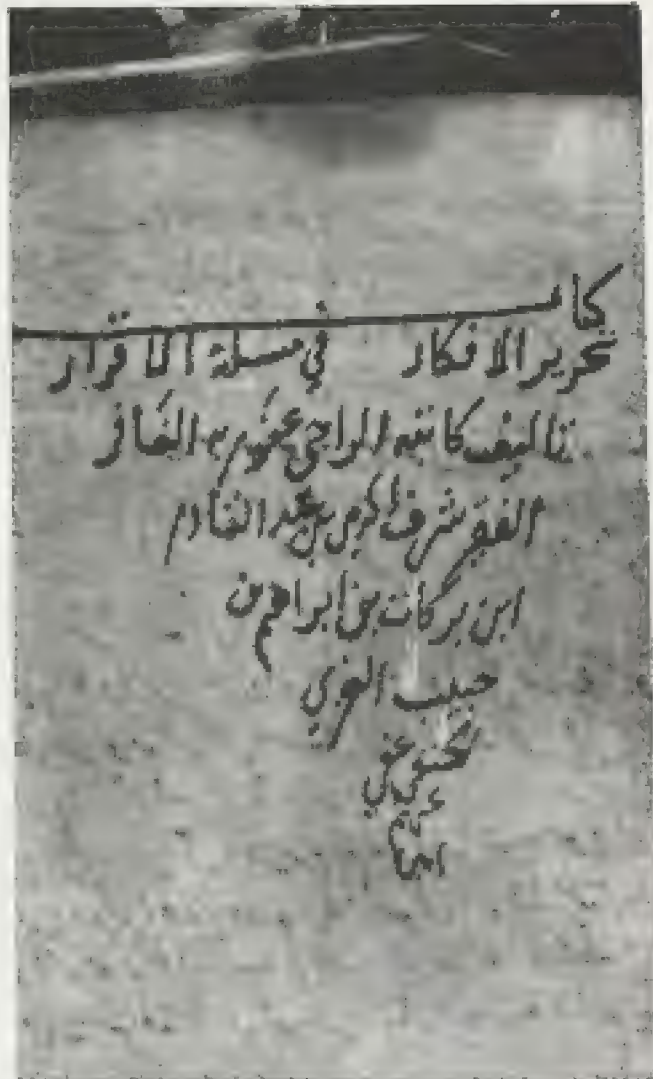 كتاب
تحرير الافكار في مسلة الاقرار
تاليف كاتبه الراجي عفو ربه الغافر
الفقير شرف الدين بن عبد القادر
ابن بركات بن ابراهيم بن
حبيب الغزي
الحنفي عفي
عنهم
امين